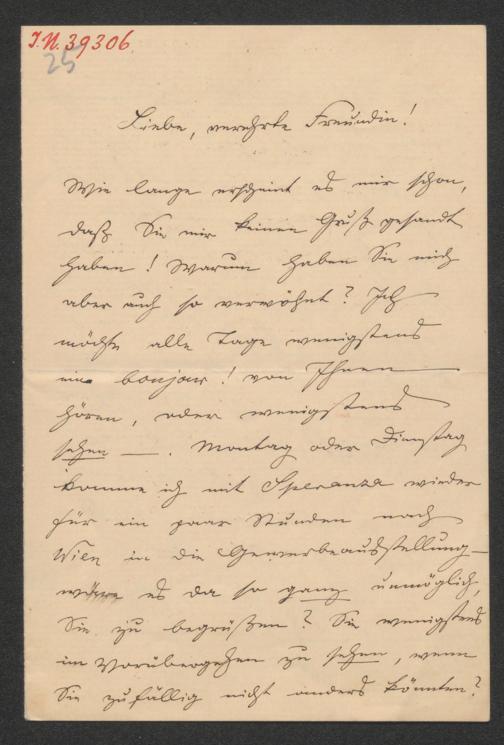 J.N. 39306
25
Liebe, verehrte Freundin!
Wie lange erscheint es mir schon,
daß Sie mir keinen Gruß gesandt
haben! Warum haben Sie mich
aber auch so verwöhnt? Ich
möchte alle Tage wenigstens
ein bonjour! von Ihnen
hören, oder wenigstens
sehen —. Montag oder Dienstag
komme ich mit Speranza wieder
für ein paar Stunden nach
Wien in die Gewerbeausstellung –
wäre es da so ganz unmöglich,
Sie zu begrüßen? Sie wenigstens
im Vorübergehen zu sehen, wenn
Sie zufällig nicht anders könnten?